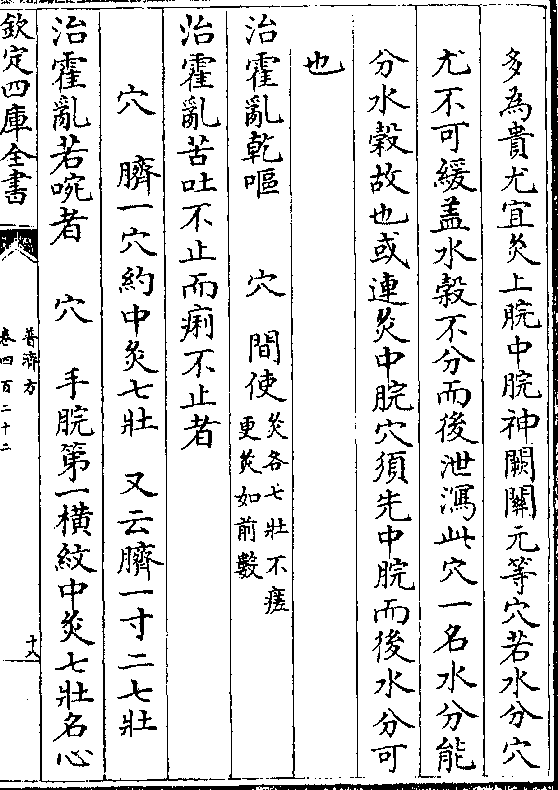 多為貴尤宜灸上脘中脘神闕關元等穴若水分穴
尤不可緩蓋水榖不分而後泄瀉此穴一名水分能
分水榖故也或連灸中脘穴須先中脘而後水分可
也
治霍亂乾嘔　穴　間使灸各七壯不瘥更灸如前數
治霍亂苦吐不止而痢不止者
穴　臍一穴約中灸七壯　又云臍一寸二七壯
治霍亂若啘者　穴　手腕第一橫紋中灸七壯名心
欽定四庫全書
普濟方
卷四百二十二
十八